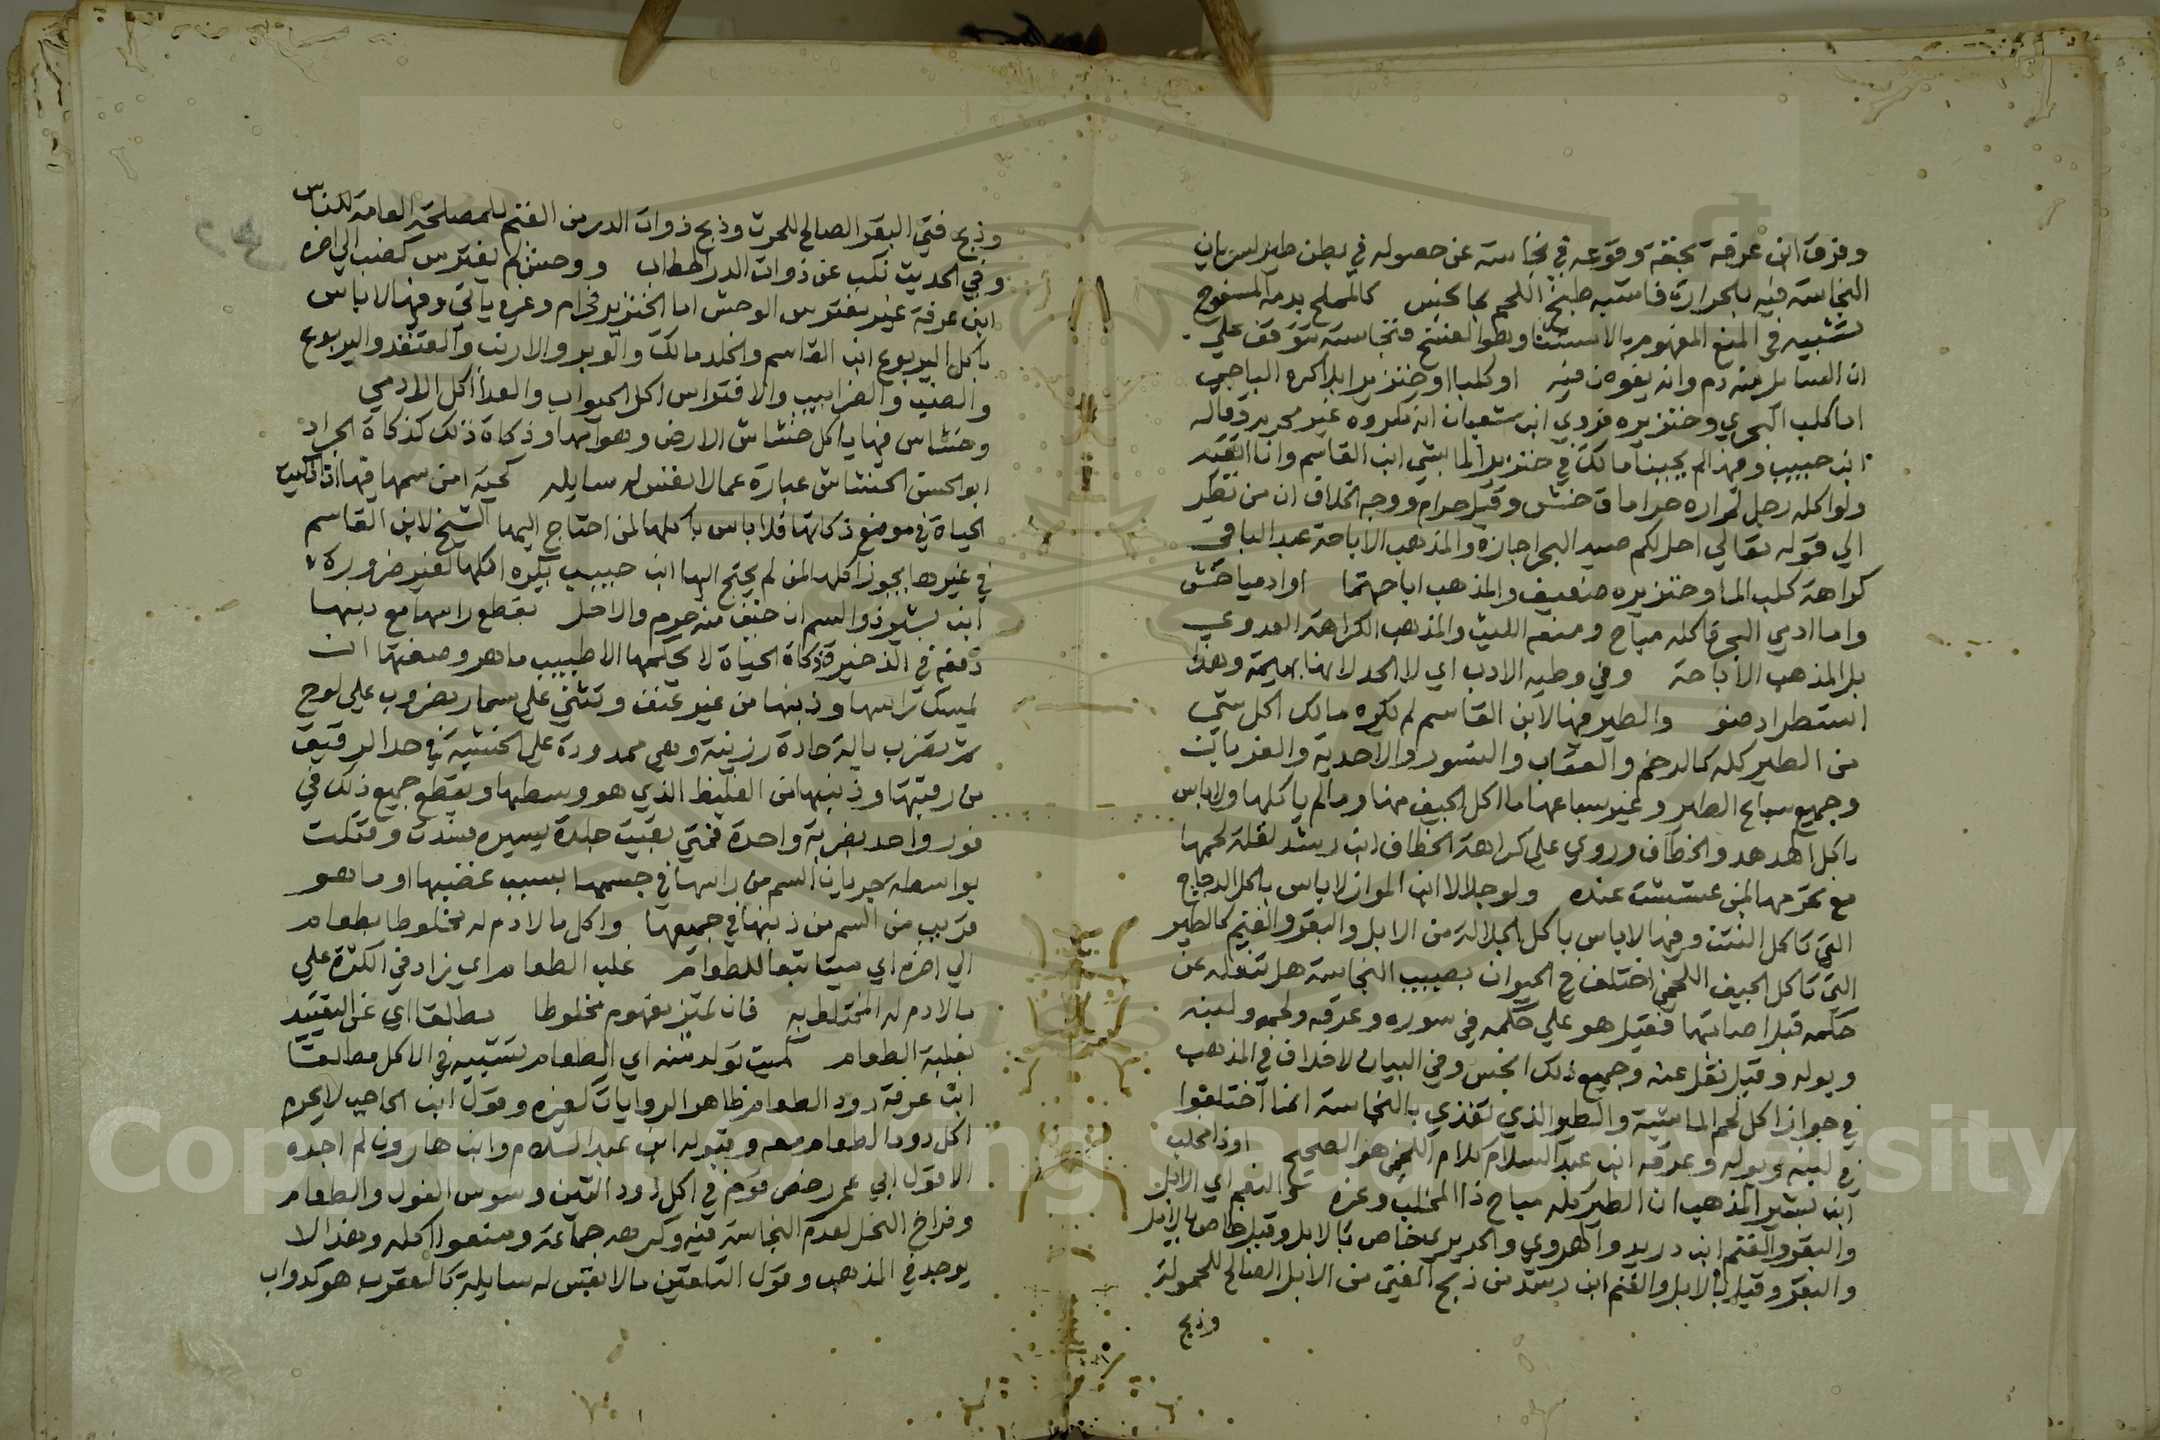 وفرق ابن عرفة بتحققه وقوعه في نجاسة عن حصوله في بطن طير لسريان
النجاسة فيه بالحرارة فاشبه طبخ اللحم بماء نجس كالمملح بدمه المسفوح
تشبيه في المنع المفهوم من الاستثناء ونجاسته تتوقف علي
ان السايل منه دم وانه يفوه فيه او كلبا او خنزيرا بلا كره الباجي
اما كلب البحري وخنزيره فروي ابن شعبان انه مكروه غير محرم وقاله
ابن حبيب وفيها لم يجبنا مالك في خنزير الما بشي ابن القاسم وانا اتقيه
ولو اكله رجل لم اره حراما ق خش وقيل حرام ووجه الخلاف ان من نظر
الي قوله تعالي احل لكم صيد البحر اجازه والمذهب الاباحة عبد الباقي
كراهة كلب الما وخنزيره ضعيف والمذهب اباحتهما او ادميا خش
واما ادمي البحر فاكله مباح ومنعه الليث والمذهب الكراهة العدوي
بل المذهب الاباحة وفي وطيه الادب اي لا الحد لانها بهيمة وهذا
استطراد ضو والطير فيها لابن القاسم لم يكره مالك اكل شي
من الطير كله كالرخم والعقاب والنسور والاحدية والغربان
وجميع سباع الطير وغير سباعها ما اكل الجيف منها وما لم ياكلها ولا باس
باكل الهدهد والخطاف وروي علي كراهة الخطاف ابن رشد لقلة لحمها
مع تحرمها لمن عششت عنده ولو جلالا ابن المواز لا باس باكل الدجاج
التي تاكل النتن وفيها لا باس باكل الجلالة من الابل والبقر والغنم كالطير
التي تاكل الجيف اللخمي اختلف في الحيوان يصيب النجاسة هل تنقله عن
حكمه قبل اصابتها فقيل هو علي حكمه في سوره وعرقه ولحمه ولبنه
وبوله وقيل نقل عنه وجميع ذلك نجس وفي البيان لا خلاف في المذهب
في جواز اكل لحم الماشية والطير الذي تغذي بالنجاسة انما اختلفوا
في لبنه وبوله وعرقه ابن عبد السلام كلام اللخمي هو الصحيح او ذا مخلب
ابن بشير المذهب ان الطير كله مباح ذا المخلب وغيره والنعم اي الابل
والبقر والغنم ابن دريد والهروي والحريري خاص بالابل وقيل خاص بالابل
والبقر وقيل بالابل والغنم ابن رشد من ذبح الفتي من الابل الصالح للحمولة
وذبح
وذبح فتي البقر الصالح للحرث وذبح ذوات الدر من الغنم للمصلحة العامة للناس
وفي الحديث نكب عن ذوات الدر الحطاب ووحش لم يفترس كضب الي اخره
ابن عرفة غير مفترس الوحش اما الخنزير فحرام وغيره ياتي وفيها لا باس
باكل اليربوع ابن القاسم والخلد مالك والوبر والارنب والقنفذ واليربوع
والضب والضرابيب والافتراس اكل الحيوان والعدا اكل الادمي
وخشاش فيها ياكل خشاش الارض وهوامها وذكاة ذلك كذكاة الجراد
ابو الحسن الخشاش عبارة عما لا نفس له سايله كحية امن سمها فيها اذا ذكيت
الحياة في موضع ذكاتها فلا باس باكلها لمن احتاج اليها الشيخ لابن القاسم
في غيرها يجوز اكلها لمن لم يحتج اليها ابن حبيب يكره اكلها لغير ضرورة
ابن بشير ذو السم ان خيف منه حرم والا حل بقطع راسها مع ذنبها
دفعة في الذخيرة ذكاة الحياة لا يحكمها الا طبيب ماهر وصفتها ان
يمسك براسها وذنبها من غير عنف وتثني علي مسمار مضروب علي لوح
ثم تضرب بالة حادة رزينة وهي ممدودة علي الخشبة في حد الرقيق
من رقبتها وذنبها من الغليظ الذي هو وسطها ويقطع جميع ذلك في
فور واحد بضربة واحدة فمتي بقيت جلدة يسيره فسدت وقتلت
بواسطة جريان السم من راسها في جسمها بسبب غضبها او ما هو
قريب من السم من ذنبها في جميعها واكل ما لا دم له مختلطا بطعام
الي اخره اي ميتا تبعا للطعام غلب الطعام اي زاد في الكثرة علي
ما لا دم له المختلط به فان تميز مفهوم مخلوطا مطلقا اي عن التقييد
بغلبة الطعام كميت تولد منه اي الطعام تشبيه في الاكل مطلقا
ابن عرفة دود الطعام ظاهر الروايات كغيره وقول ابن الحاجب لا يحرم
اكل دود الطعام معه وقبوله ابن عبد السلام وابن هارون لم اجده
الا قول ابي عمر رخص قوم في اكل دود التين وسوس الفول والطعام
وفراخ النحل لعدم النجاسة فيه وكرهه جماعة ومنعوا اكله وهذا لا
يوجد في المذهب وقول التلقين ما لا نفس له سايلة كالعقرب هو كدواب